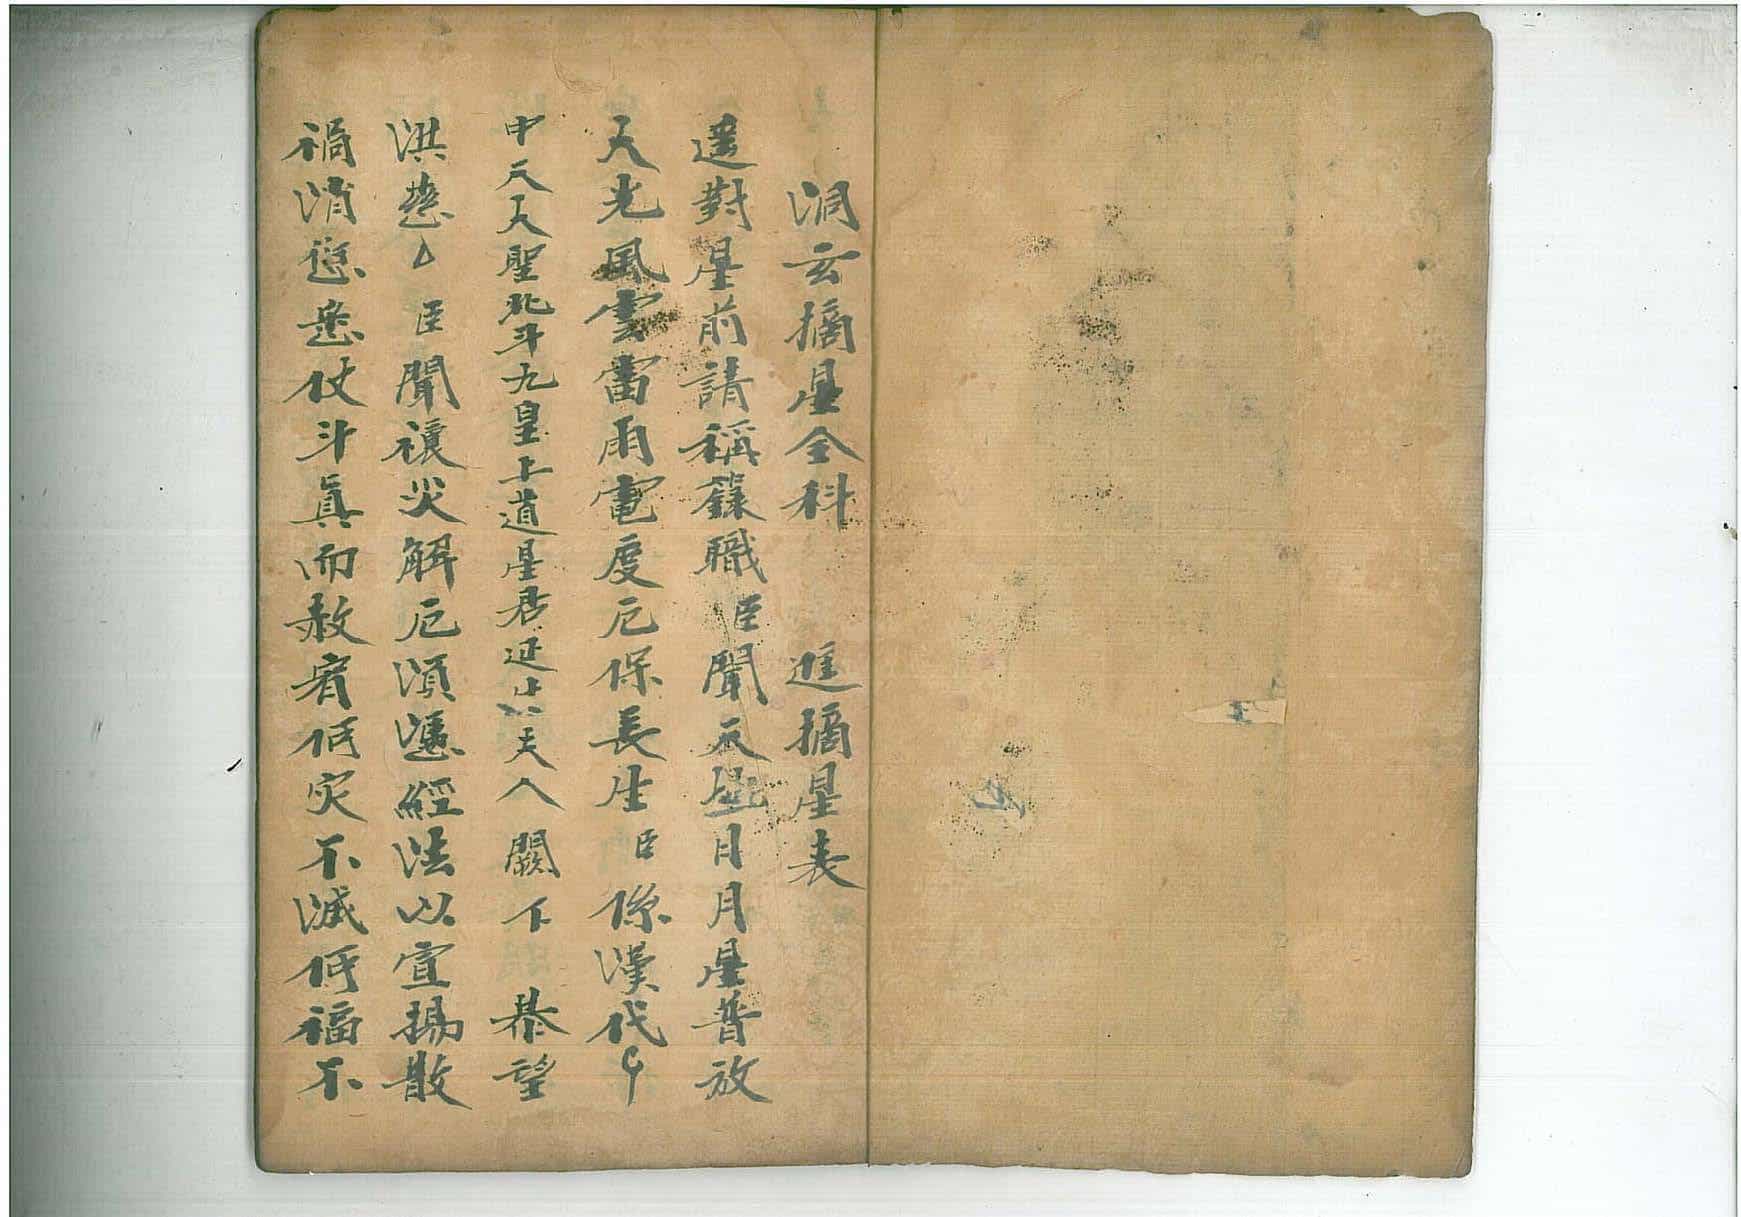 洞玄摘星全科　進摘星表
遥對星前請稱籙職臣聞天　日月星普放
天光風雲雷雨電度厄保長生臣係漢代
中天大聖北斗九皇上道星君延　夫人闕下恭望
洪慈　臣聞禳災解厄須憑經法以宣揚散
禍消愆悉仗斗真而赦宥何灾不滅何福不